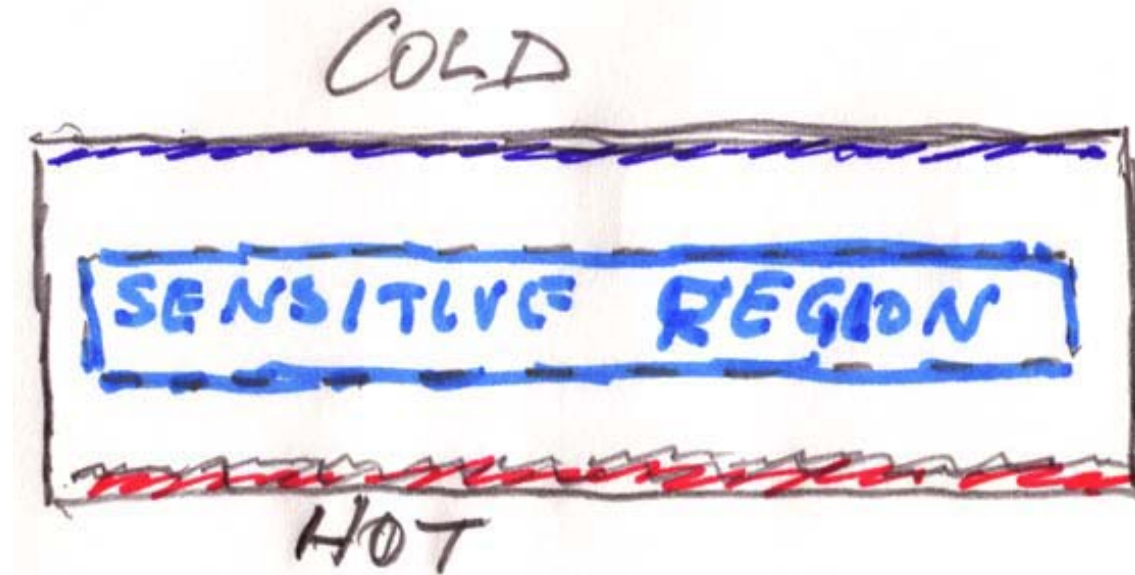 COLD
SENSITIVE REGION
HOT